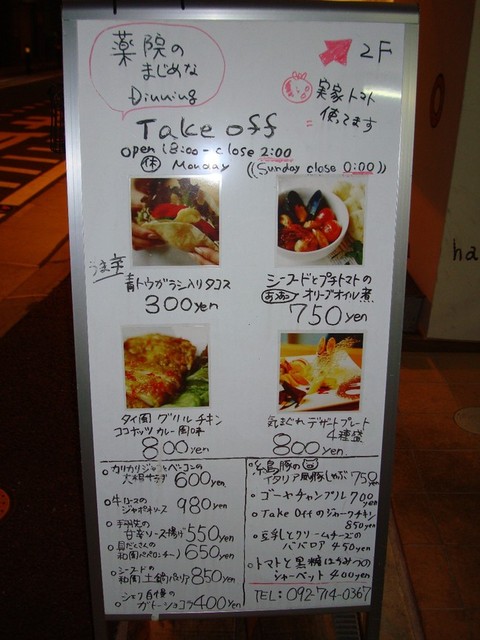 薬院の
まじめな
Dinning
2F
実家トマト
使ってます
Take off
open 18:00 - close 2:00
休 Monday ((Sunday close 0:00))
うま辛
青トウガラシ入りタコス
300yen
シーフードとプチトマトの
オリーブオイル煮
750yen
タイ風グリルチキン
ココナッツカレー風味
800yen
気まぐれデザートプレート
4種盛
800yen
カリカリじゃことベーコンの
大根サラダ 600yen
牛ロースの
ジャポネソース 980yen
手羽先の
甘辛ソース揚げ 550yen
具だくさんの
和風ペペロンチーノ 650yen
シーフードの
和風土鍋パエリア 850yen
シェフ自慢の
ガトーショコラ 400yen
糸島豚の
イタリア風豚しゃぶ 750yen
ゴーヤチャンプル 700yen
Take Offのジャークチキン
850yen
豆乳とクリームチーズの
ババロア 450yen
トマトと黒糖はちみつの
シャーベット 400yen
TEL: 092-714-0367
ha